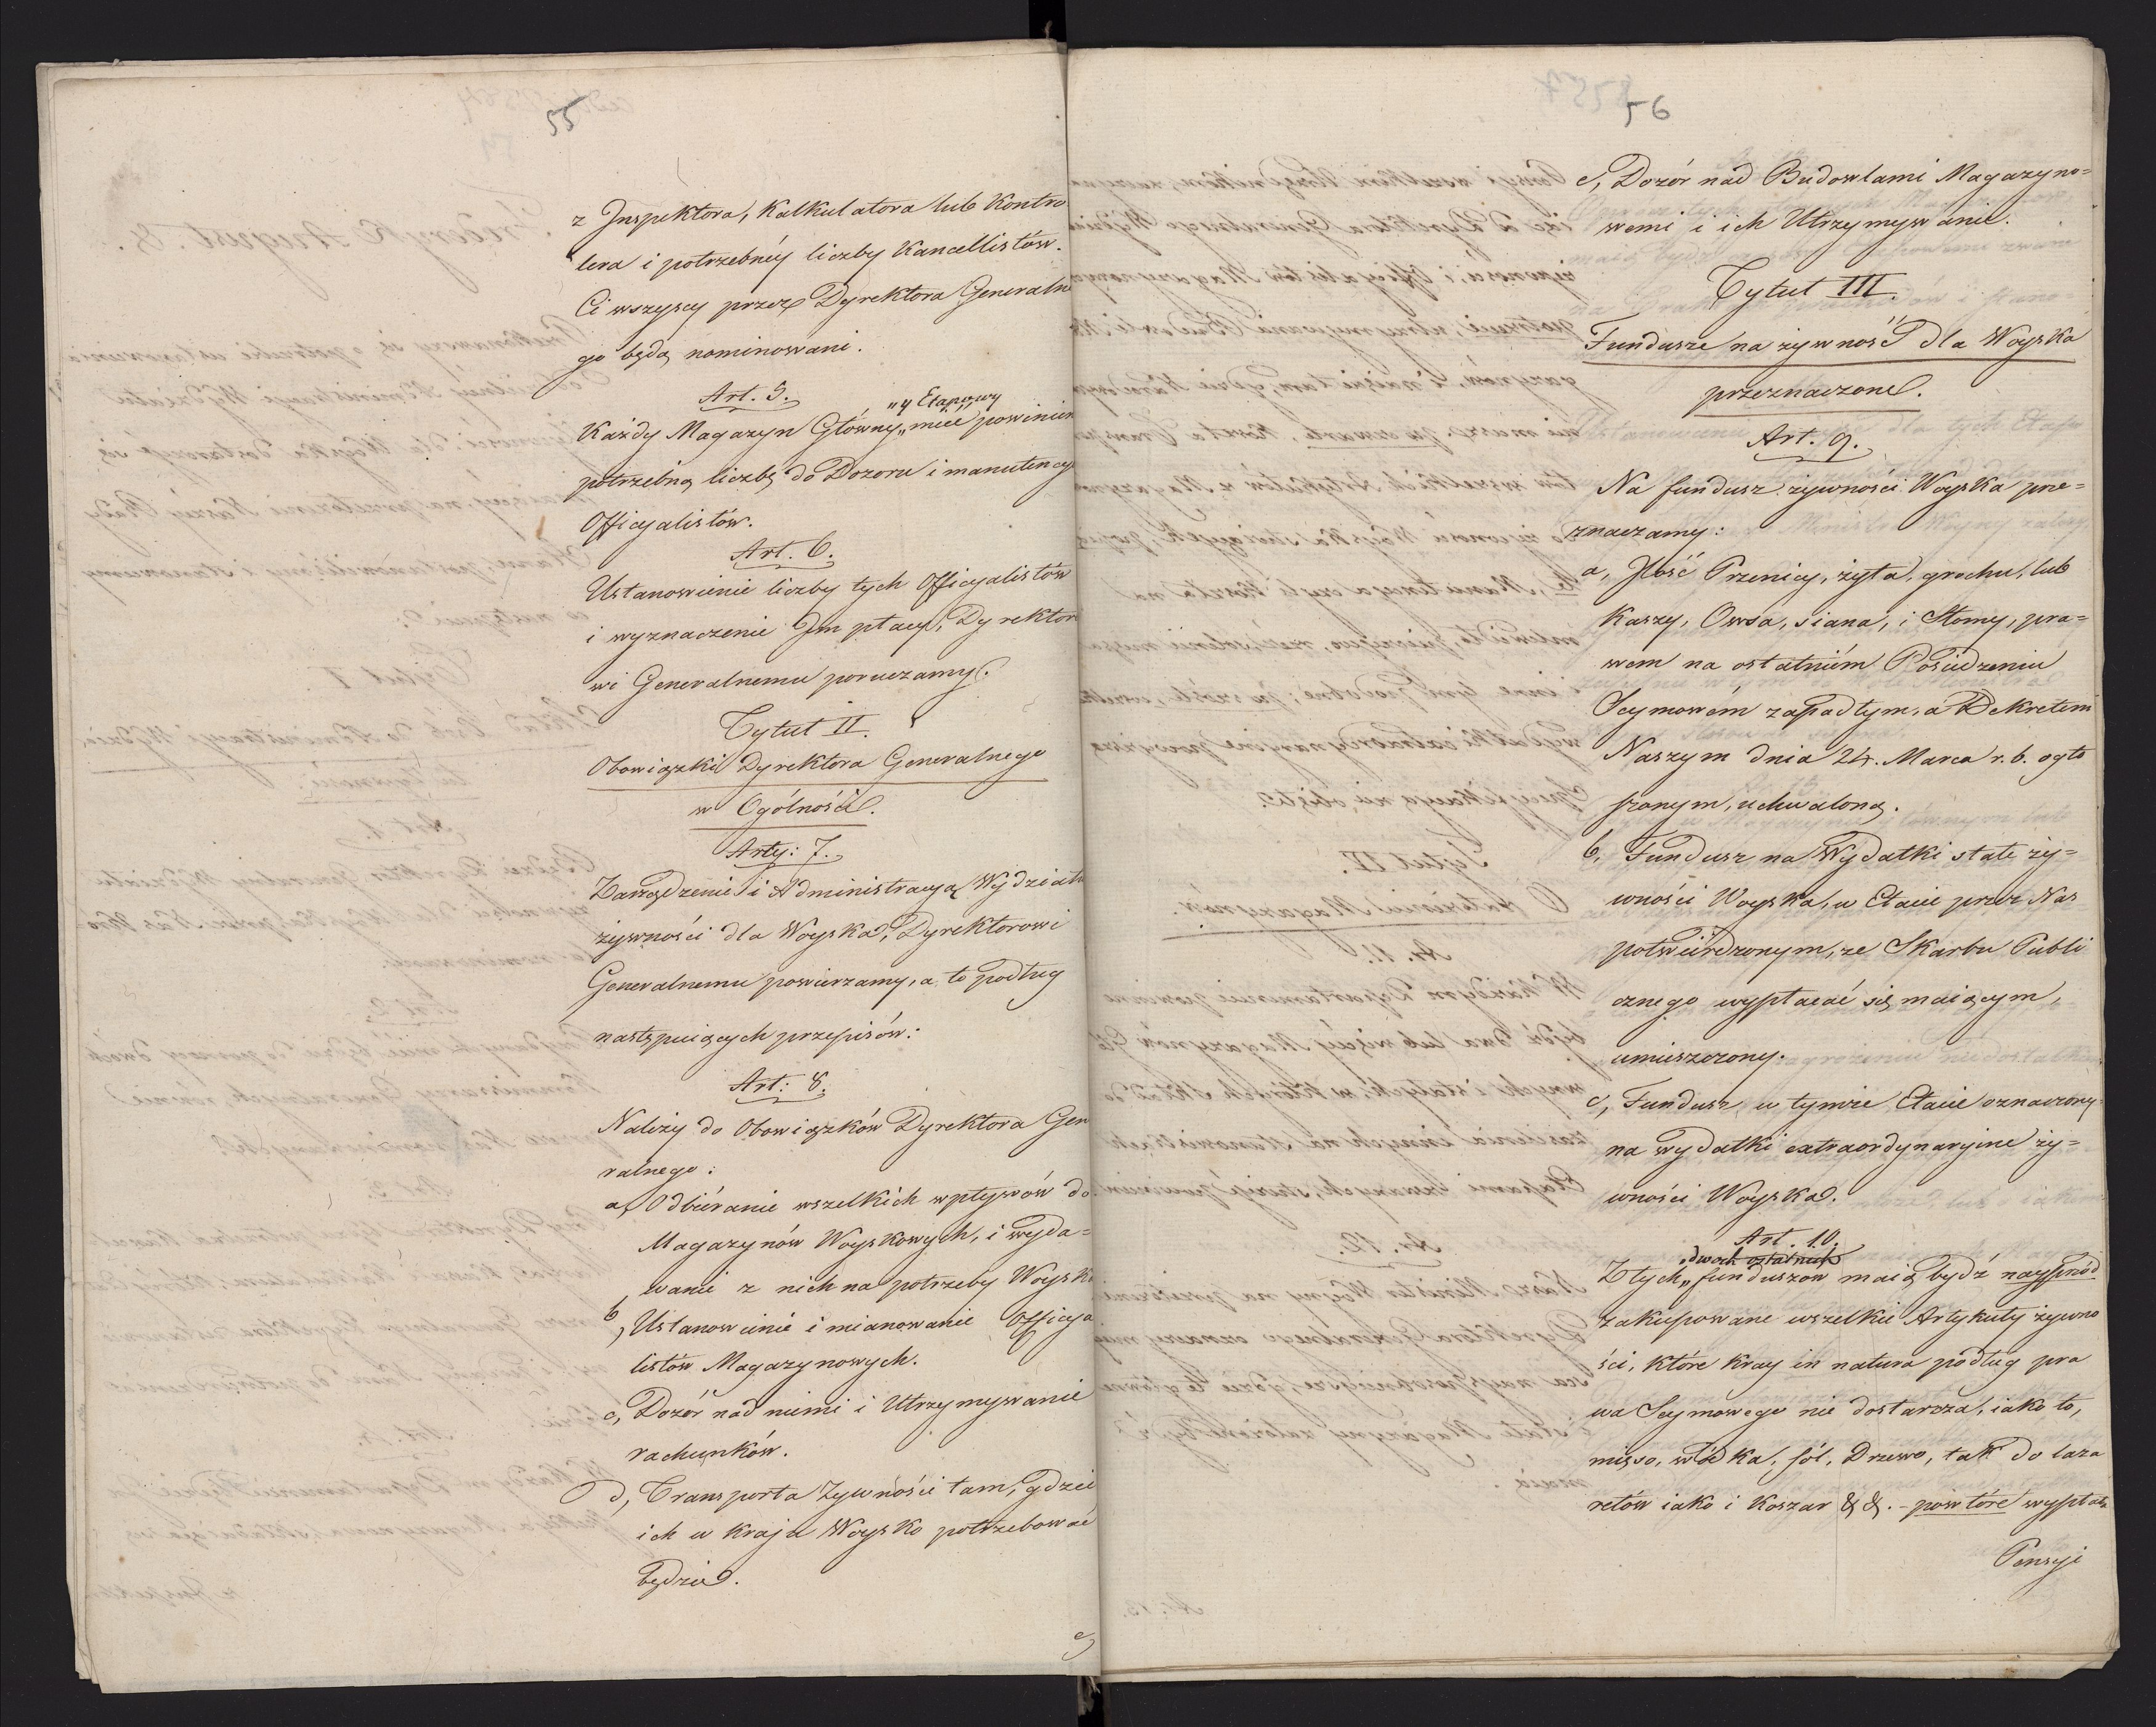 55
z Inspektora, Kalkulatora lub Kontro
lera i potrzebnéy liczby Kancellistów.
Ci wszyscy przez Dyrektora Generalne
go będą nominowani.
Art. 5.
"y Etapowy
Każdy Magazyn Główny" mieć powinien
potrzebną liczbę do Dozoru i manutencyi
Officyalistów.
Art. 6.
Ustanowienie liczby tych Officyalistów
i wyznaczenie Im płacy, Dyrektoro
wi Generalnemu poruczamy.
Tytuł II.
Obowiązki Dyrektora Generalnego
w Ogólności.
Arty: 7.
Zarządzenie i Administracyą Wydziału
żywności dla Woyska, Dyrektorowi
Generalnemu powierzamy, a to podług
następuiących przepisów:
Art: 8.
Należy do Obowiązków Dyrektora Gen
ralnego:
a, Odbiéranie wszelkich wpływów do
Magazynów Woyskowych, i wyda=
wanie z nich na potrzeby Woyska
b, Ustanowienie i mianowanie Officya
listów Magazynowych.
c, Dozór nad niemi i Utrzymywanie
rachunków.
d, Transporta Żywności tam, gdzie
ich w kraju Woysko potrzebować
będzie.
e,
56
e, Dozór nad Budowlami Magazyno=
wemi i ich Utrzymywanie.
Tytuł III.
Fundusze na żywność dla Woyska
przeznaczone.
Art. 9.
Na fundusz żywności Woyska prze=
znaczamy:
a, Ilość Pszenicy, żyta, grochu, lub
Kaszy, Owsa, siana, i Słomy, pra=
wem na ostatniém Posiedzeniu
Seymowém zapadłym, a Dekretem
Naszym dnia 24. Marca r. b. ogło
szonym, uchwaloną.
b, Fundusz na Wydatki stałe ży=
wności Woyska, w Etacie przez Nas
potwierdzonym, ze Skarbu Publi
cznego wypłacać się maiącym,
umieszczony.
c, Fundusz w tymże Etacie oznaczony
na wydatki extraordynaryine ży=
wności Woyska.
Art. 10.
"dwoch ostatnich
Z tych" funduszow maią bydź nayprzód
zakupowane wszelkie Artykuły żywno
ści, które kray in natura podług pra
wa Seymowego nie dostarcza, iako to,
mięso, wódka, sól, Drzewo, tak do laza
retów iako i Koszar & &. - powtóre wypłata
Pensyi